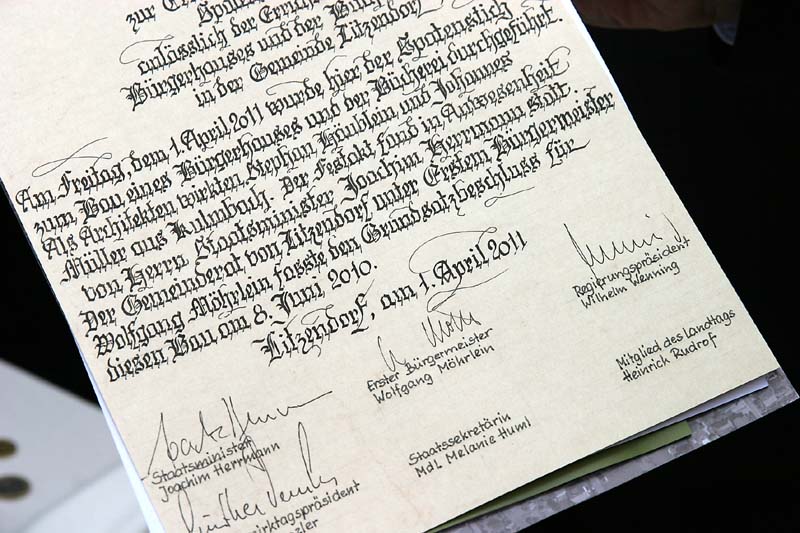 zur
anlässlich der
Bürgerhauses und der
in der Gemeinde Litzendorf
Am Freitag, dem 1. April 2011 wurde hier der Spatenstich
zum Bau eines Bürgerhauses und der Bücherei durchgeführt.
Als Architekten wirkten Stephan Häublein und Johannes
Müller aus Kulmbach. Der Festakt fand in Anwesenheit
von Herrn Staatsminister Joachim Herrmann statt.
Der Gemeinderat von Litzendorf unter Erstem Bürgermeister
Wolfgang Möhrlein fasste den Grundsatzbeschluss für
diesen Bau am 8. Juni 2010.
Litzendorf, am 1. April 2011
Regierungspräsident
Wilhelm Wenning
Erster Bürgermeister
Wolfgang Möhrlein
Mitglied des Landtags
Heinrich Rudrof
Staatsminister
Joachim Herrmann
Staatssekretärin
MdL Melanie Huml
irktagspräsident
nzler